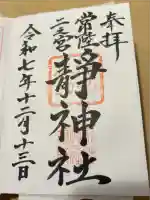 奉拝
常陸二之宮
靜神社
令和七年十二月十三日